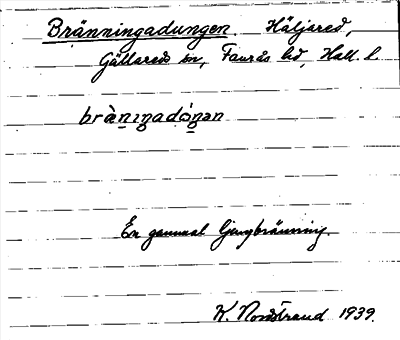 Bränningadungen. Häljared,
Gällared sn, Faurås hd, Hall. l.
brànıŋadóŋən
En gammal ljungbränning.
K. Nordstrand 1939.